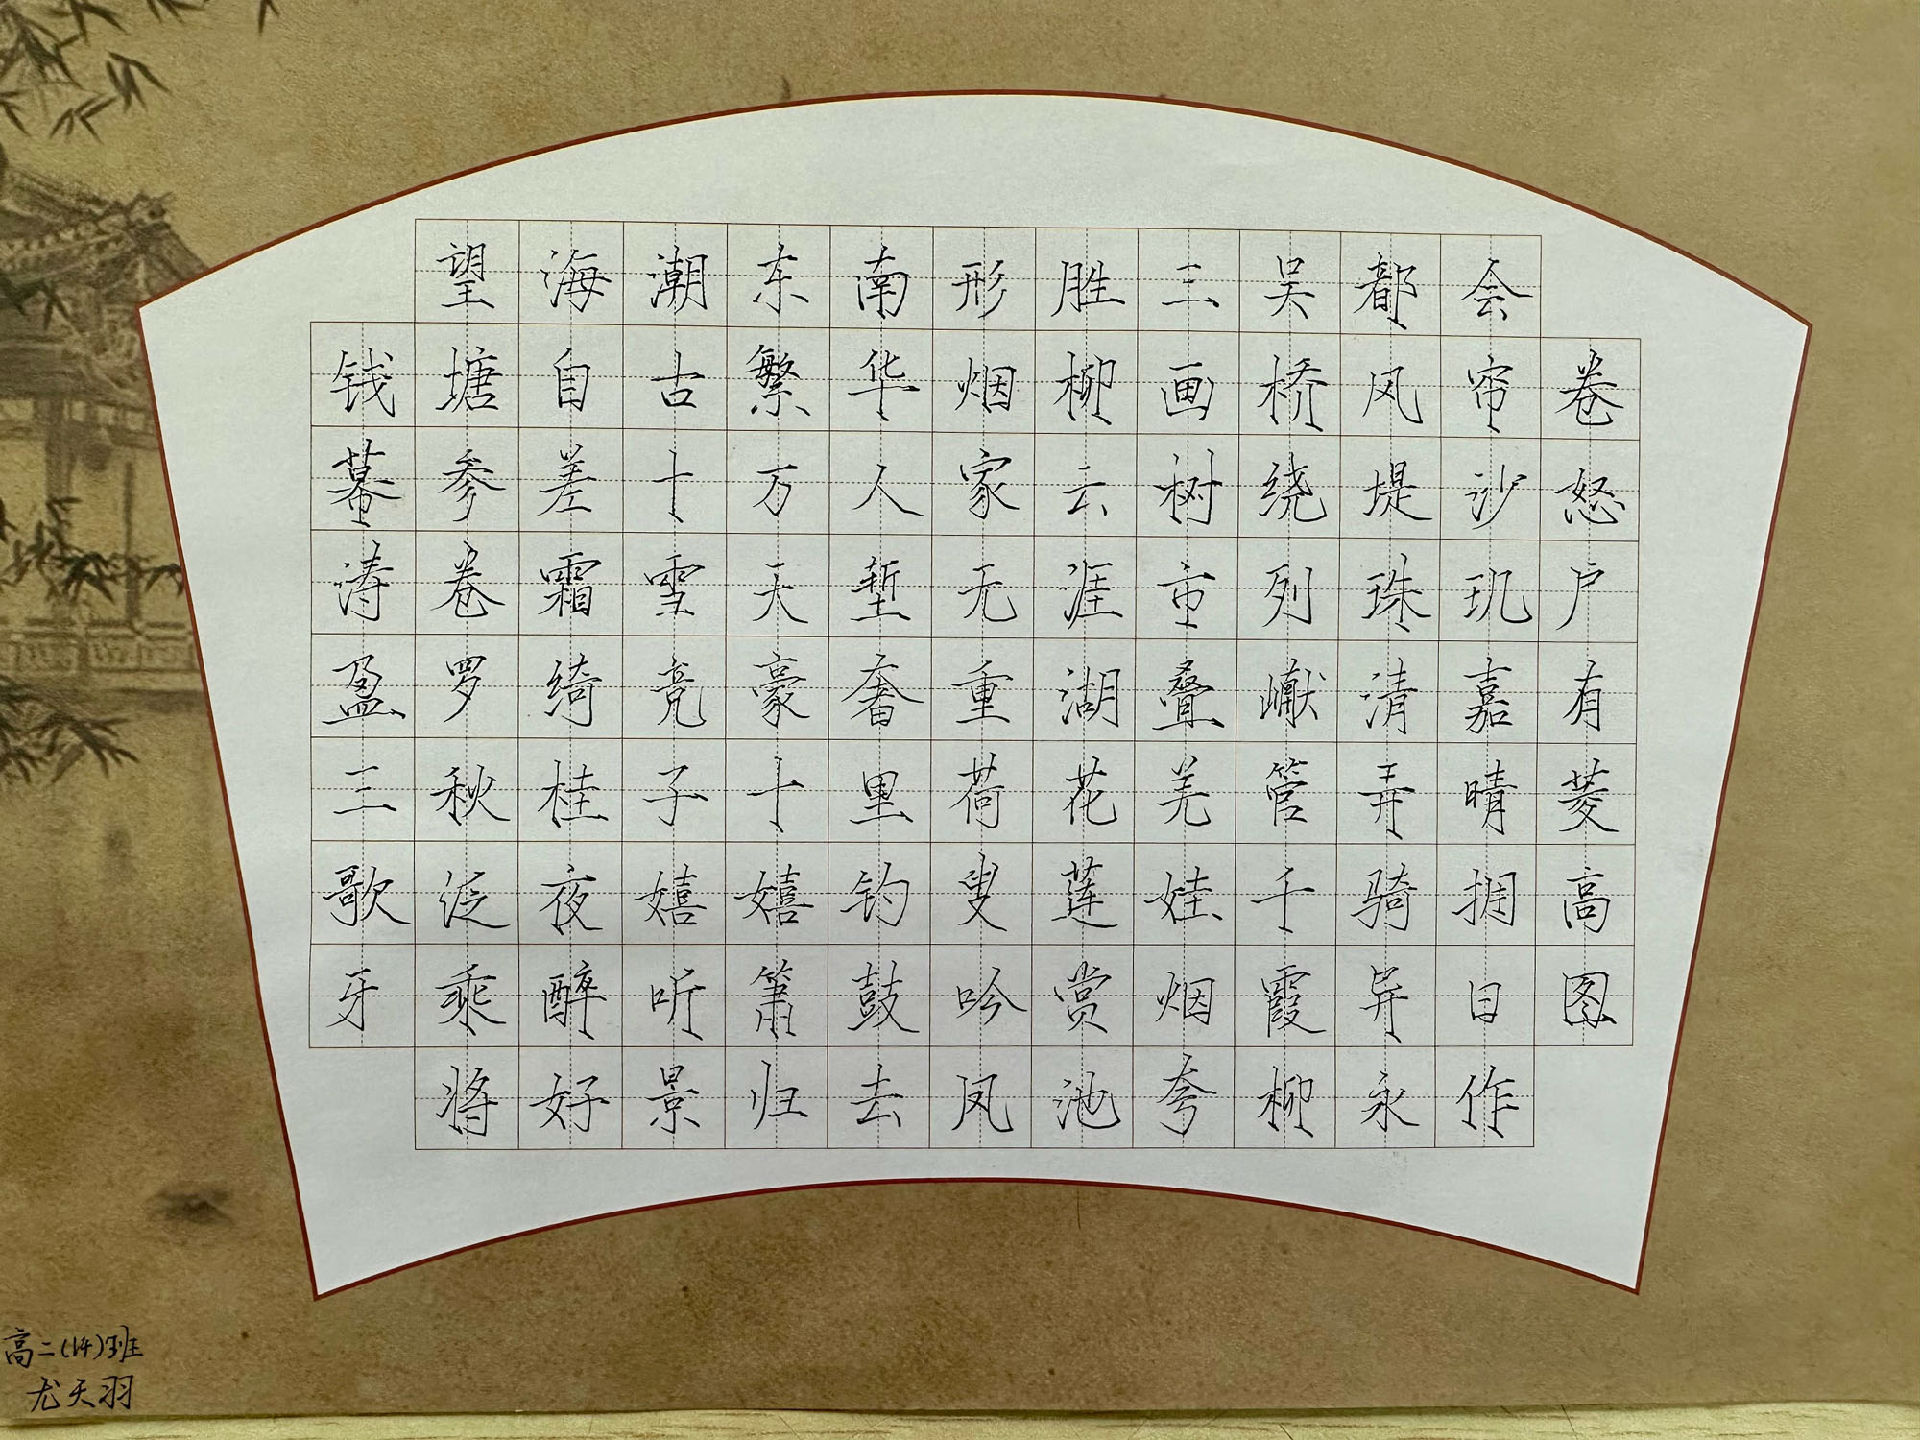 望海潮东南形胜三吴都会
钱塘自古繁华烟柳画桥风帘卷
幕参差十万人家云树绕堤沙怒
涛卷霜雪天堑无涯市列珠玑户
盈罗绮竞豪奢重湖叠巘清嘉有
三秋桂子十里荷花羌管弄晴菱
歌泛夜嬉嬉钓叟莲娃千骑拥高
牙乘醉听箫鼓吟赏烟霞异日图
将好景归去凤池夸柳永作
高二(14)班
尤天羽